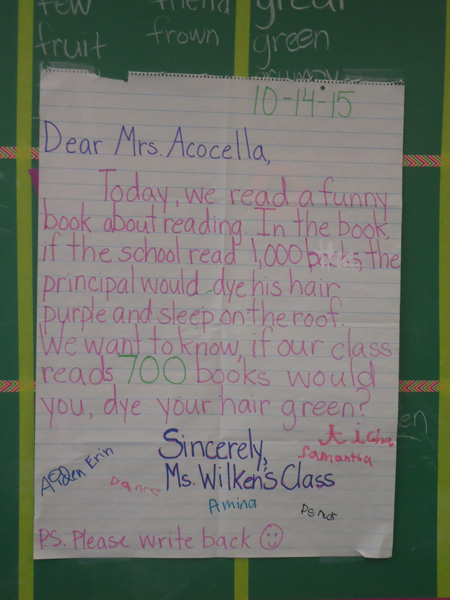 few friend great
fruit frown green
10-14-15
Dear Mrs. Acocella,
Today, we read a funny
book about reading. In the book,
if the school read 1,000 books, the
principal would dye his hair
purple and sleep on the roof.
We want to know, if our class
reads 700 books would
you, dye your hair green?
Sincerely,
Samantha
Aiden Erin
Ms. Wilken's Class
Amina
P.S. Please write back